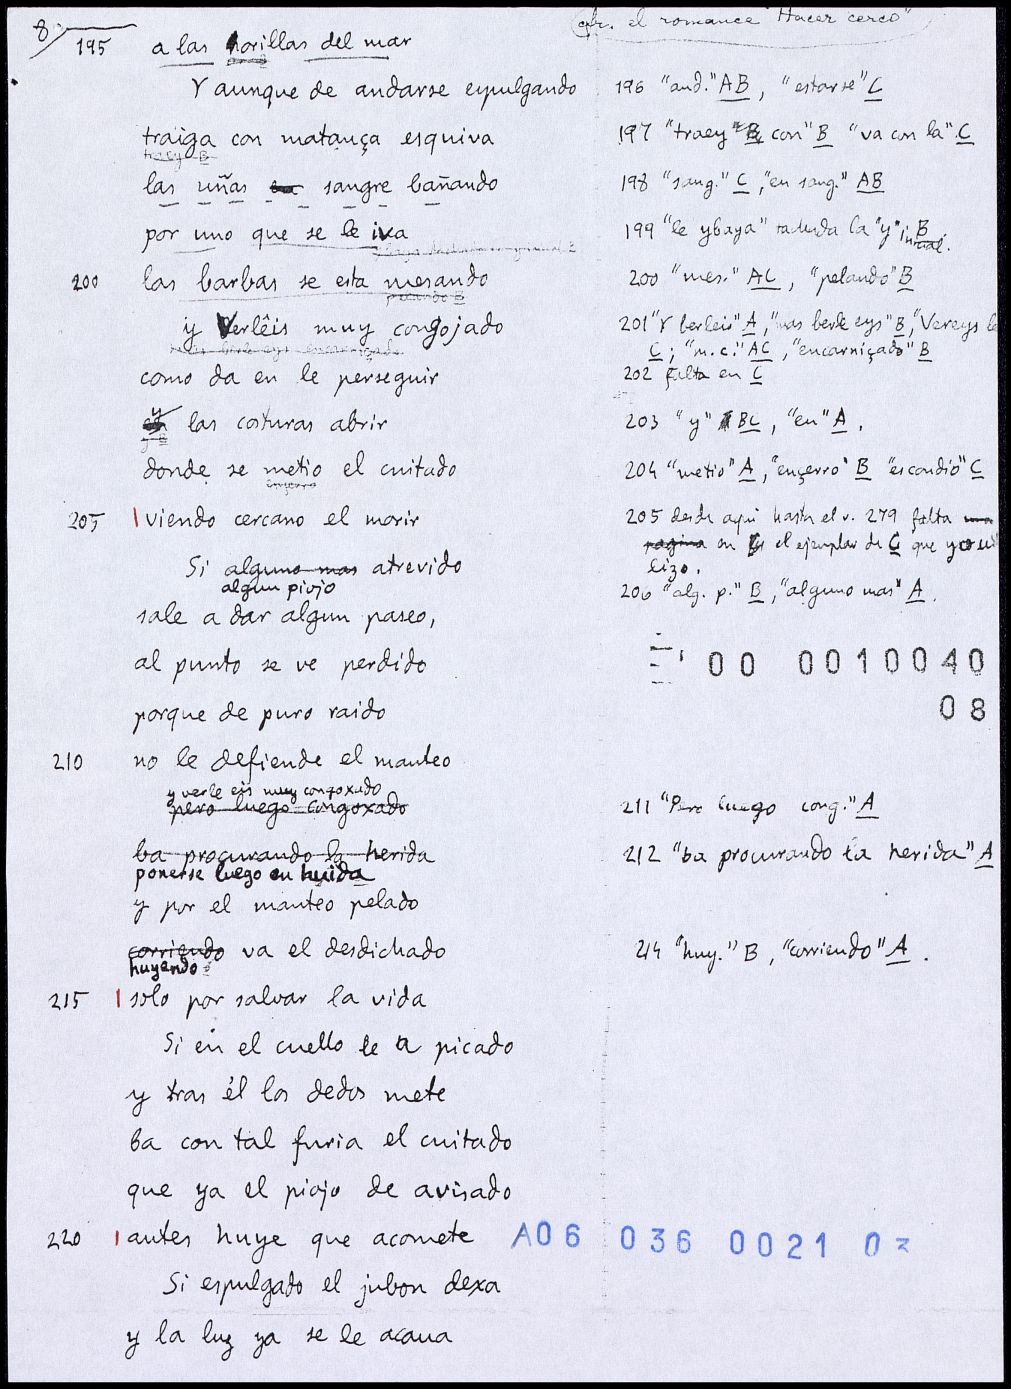 8
cfr. el romance "Hacer cerco"
195 a las horillas del mar
Y aunque de andarse espulgando
196 "and." AB, "estarse" C
traiga con matança esquiva
traey B
197 "traey" B con" B "va con la" C
las uñas sangre bañando
198 "sang." C, "en sang." AB
por uno que se le iva
199 "le ybaya" tachada la "y" inicial. B
200 las barbas se esta mesando
pelando B
200 "mes." AC, "pelando" B
y Verléis muy congojado
mas berle eys encarniçado
201 "Y berleis" A, "mas berle eys" B, "Vereys le
C; "m.c." AC, "encarniçado" B
como da en le perseguir
202 falta en C
y
en las costuras abrir
y B
203 "y" BC, "en" A.
donde se metio el cuitado
ençerro
204 "metio" A, "ençerro" B "escondió" C
205 viendo cercano el morir
205 desde aqui hasta el v. 279 falta una
pagina en el ejemplar de C que yo uti
lizo.
Si alguno mas atrevido
algun piojo
206 "alg. p." B, "alguno mas" A.
sale a dar algun paseo,
al punto se ve perdido
00 0010040
08
porque de puro raido
210 no le defiende el manteo
y verle eis muy congoxado
pero luego congoxado
211 "Pero luego cong." A
ba procurando la herida
ponerse luego en huida
212 "ba procurando la herida" A
y por el manteo pelado
corriendo va el desdichado
huyendo
214 "huy." B, "corriendo" A.
215 solo por salvar la vida
Si en el cuello le a picado
y tras él los dedos mete
ba con tal furia el cuitado
que ya el piojo de avisado
220 antes huye que acomete
A06 036 0021 03
Si espulgado el jubon dexa
y la luz ya se le acava